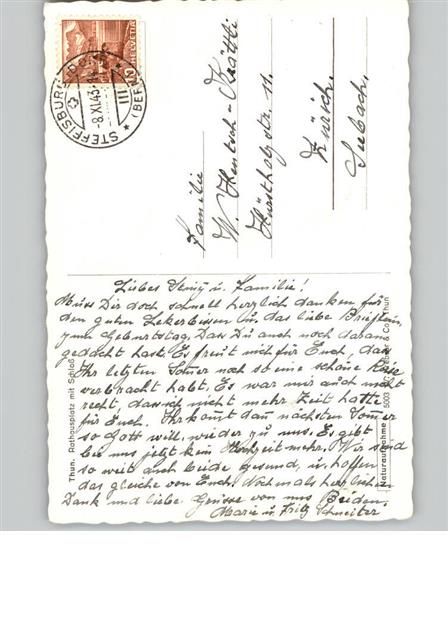 STEFFISBURG
-8.XI.43.
(BERN)
10
HELVETIA
Familie
W. Hentsch - Krättli
Hürstholzstr. 11.
Zürich.
Seebach.
Liebes u. Familie!
Muss Dir doch schnell herzlich danken für
den guten Lekerbissen u. das liebe Brieflein,
zum Geburtstag, Das Du auch noch daran
gedacht hast. Es freut mich für Euch, das
Ihr letzten Somer noch so eine schöne
verbracht habt. Es war mir auch nicht
recht das ich nicht mehr Zeit hatte
für Euch. Ihr komt dan nächsten Somer
so Gott will, wieder zu uns. Es gibt
bei uns jetzt kein Hochzeit mehr. Wir sind
so weit auch beide gesund, u. hoffen
das gleiche von Euch. Nochmals herzlichen
Dank und liebe Grüsse von uns Beiden.
Marie u. Fritz
Thun. Rathausplatz mit Schloß
Naturaufnahme
5003
Co. Thun